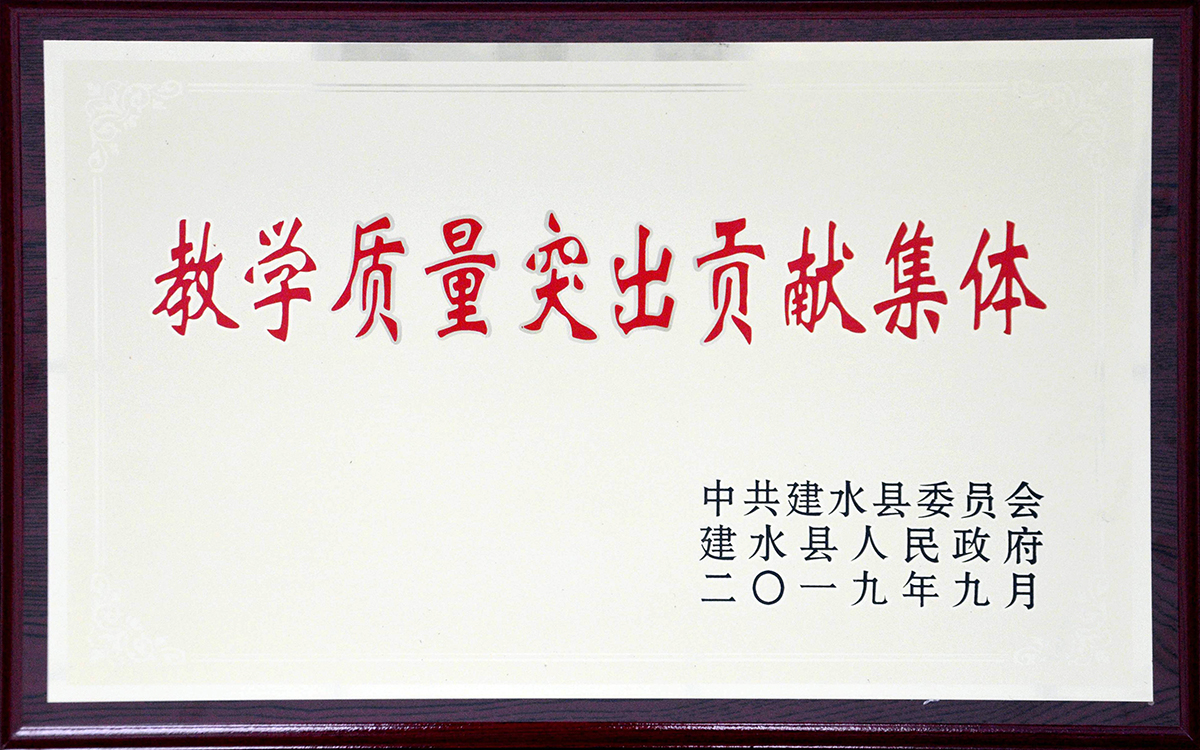 教学质量突出贡献集体
中共建水县委员会
建水县人民政府
二〇一九年九月